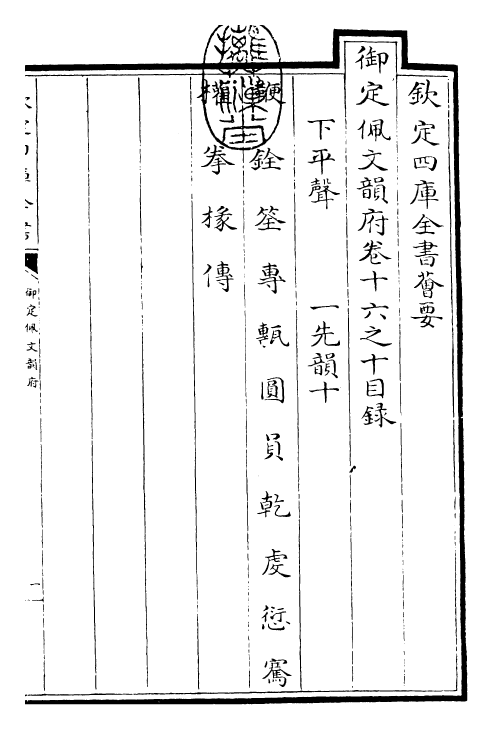 欽定四庫全書薈要
御定佩文韻府卷十六之十目録
下平聲 一先韻十
銓筌專甎圓員乾虔愆騫
權拳掾傳
御定佩文韻府
一